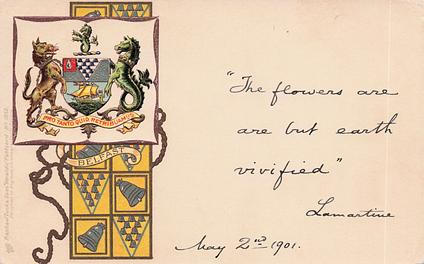 PRO TANTO QUID RETRIBUAMUS
BELFAST
"The flowers are
are but earth
vivified"
Lamartine
May 2nd 1901.